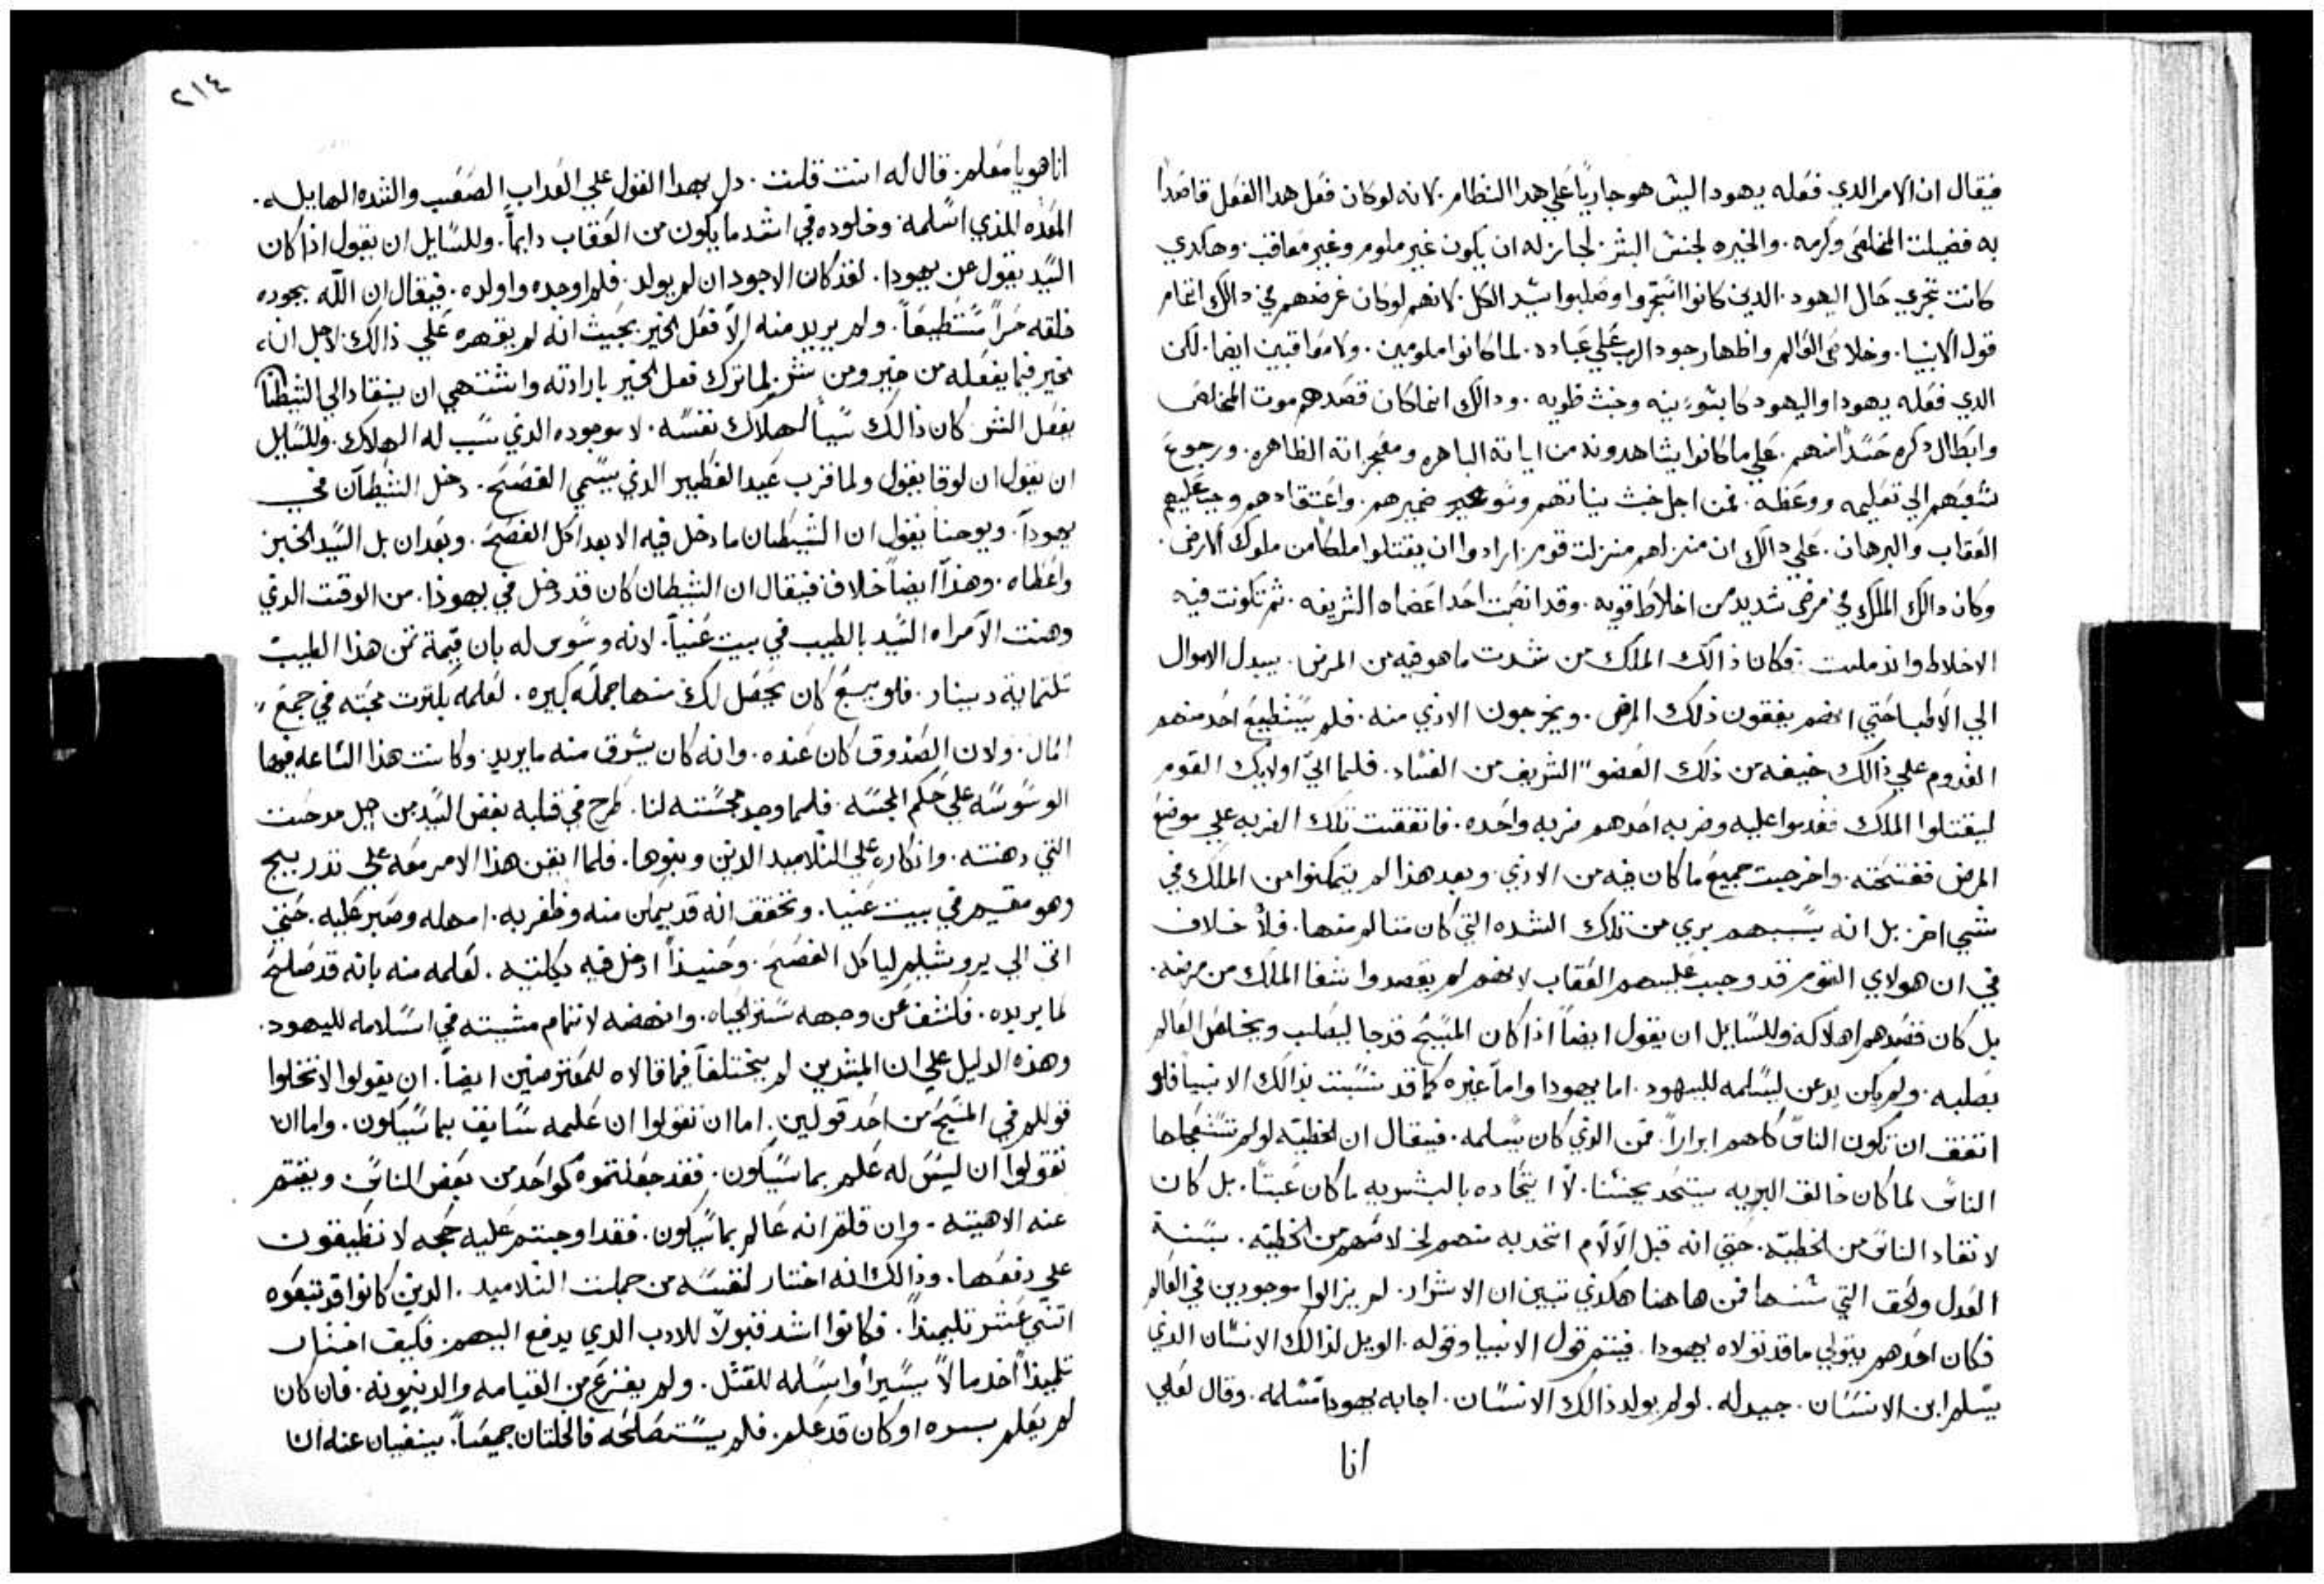 فيقال ان الامر الدي فعله يهودا ليش هو جاريًا علي هدا النظام. لانه لو كان فعل هدا الفعل قاصدًا
به فضيلت المخلص وكرمه. والخيره لجنش البشر. لجاز له ان يكون غير ملوم وغير معاقب. وهكدي
كانت تجري حال اليهود. الدين كانوا وصلبوا شيد الكل. لانهم لو كان غرضهم في دالك اتمام
قول الانبيا. وخلاص العالم واظهار جود الرب علي عباده. لما كانوا ملومين. ولا معاقبين ايضا. لكن
الدي فعله يهودا واليهود كا بشو نيه وخبث طويه. ودالك انما كان قصدهم موت المخلص
وابطال دكره حسدًا منهم. علي ما كانوا يشاهدونه من اياته الباهره ومعجزاته الظاهره. ورجوع
شعبهم الي تعليمه ووعظه. فمن اجل خبث نياتهم وسو ضميرهم. واعتقادهم وجب عليهم
العقاب والبرهان. علي دالك ان منزلهم منزلت قوم. ارادوا ان يقتلوا ملكًا من ملوك الارض.
وكان دالك الملك في مرض شديد من اخلاط قويه. وقد احد اعضاه الشريفه. ثم تكونت فيه
الاخلاط واندملت. فكان ذالك الملك من شدت ما هو فيه من المرض. يبدل الاموال
الي الاطبا حتي انهم يفقون ذلك المرض. ويخرجون الاذي منه. فلم يستطيع احد منهم
القدوم علي ذالك خيفه من ذلك العضو الشريف من الفساد. فلما اتي اولايك القوم
ليقتلوا الملك فقدموا عليه وضربه احدهم ضربه واحده. فاتفقت تلك الضربه علي موضع
المرض ففتحته. واخرجت جميع ما كان فيه من الاذي. وبعد هذا لم يتمكنوا من الملك في
شي اخر. بل انه بسببهم بري من تلك الشده التي كان متالم منها. فلا خلاف
في ان هولاي القوم قد وجب عليهم العقاب لانهم لم يقصدوا شفا الملك من مرضه.
بل كان قصدهم اهلاكه وللسايل ان يقول ايضاً اذا كان المسيح قد جا ليصلب ويخلص العالم
بصلبه. ولم يكن بد عن ليسلمه لليهود. اما يهودا واما غيره كما قد بذالك الانبيا فلو
اتفق ان تكون الناس كلهم ابراراً. فمن الذي كان يسلمه. فيقال ان الخطيه لو لم
الناس لما كان خالق البريه يتحد بجنسنا. لان اتحاده بالبشريه ما كان عبثاً. بل كان
لانقاد الناس من الخطيه. حتي انه قبل الالام اتحد به منهم لخلاصهم من الخطيه. بسنة
العدل والحق التي سنها فمن هاهنا هكذي تبين ان الاشرار. لم يزالوا موجودين في العالم
فكان احدهم يتولي ما قد تولاه يهودا. فيتم قول الانبيا وقوله. الويل لذالك الانسان الذي
يسلم ابن الانسان. جيد له. لو لم يولد ذالك الانسان. اجابه يهودا مسلمه. وقال لعلي
انا
٢١٤
انا هو يا معلم. قال له انت قلت. دل بهدا القول علي العداب الصعب والشده الهايله.
المعده للذي اسلمه. وخلوده في اشد ما يكون من العقاب دايماً. وللسايل ان يقول اذا كان
السيد يقول عن يهودا. لقد كان الاجود ان لم يولد. فلم اوجده واولده. فيقال ان الله بجوده
خلقه حراً مستطيعاً. ولم يريد منه الا فعل الخير بحيث انه لم يقهره علي ذالك. لاجل انه
مخير فيما يفعله من خير ومن شر. لما ترك فعل الخير بارادته واشتهي ان ينقاد الي الشيطان
بفعل الشر. كان ذالك سبباً لهلاك نفسه. لا موجوده الذي سبب له الهلاك. وللسايل
ان يقول ان لوقا يقول ولما قرب عيد الفطير الذي يسمي الفصح. دخل الشيطان في
يهوداً. ويوحنا يقول ان الشيطان ما دخل فيه الا بعد اكل الفصح. وبعد ان بل السيد الخبز
واعطاه. وهذا ايضاً خلاف فيقال ان الشيطان كان قد دخل في يهودا. من الوقت الذي
دهنت الامراه السيد بالطيب في بيت عنيا. لانه وسوس له بان قيمة ثمن هذا الطيب
تلتماية دينار. فلو بيع كان يحصل لك منها جمله كبيره. لعلمه بكثرت محبته في جمع
المال. ولان الصندوق كان عنده. وانه كان يسرق منه ما يريد. وكانت هذا الساعه فيها
الوسوسه علي حكم المجسه. فلما وجد مجسته لنا. طرح في قلبه بغض السيد من اجل مدحت
التي دهنته. وانكاره علي التلاميد الدين وبخوها. فلما ايقن هذا الامر معه علي تدريج
وهو مقيم في بيت عنيا. وتحقق انه قد يمكن منه وظفر به. امهله وصبر عليه. حتي
اتي الي يروشليم لياكل الفصح. وحنيذاً ادخل فيه بكليته. لعلمه منه بانه قد صلح
لما يريده. فكشف عن وجهه ستر الحياه. وانهضه لاتمام مشيته في اسلامه لليهود.
وهذه الدليل علي ان المبشرين لم يختلفاً فيما قالاه للمعترضين ايضاً. ان يقولوا لا تخلوا
قوللم في المسيح من احد قولين. اما ان تقولوا ان علمه سابق بما سيكون. واما ان
تقولوا ان ليس له علم بما سيكون. فقد جعلتموه كواحد من بعض الناس. ونفيتم
عنه الاهيته. وان قلتم انه عالم بما سيكون. فقد اوجبتم عليه حجه لا تطيقون
علي دفعها. وذالك انه اختار لنفسه من جملت التلاميد. الدين كانوا قد تبعوه
اتني عشر تلميذاً. فكانوا اشد قبولاً للادب الدي يدفع اليهم. فكيف اختار
تلميذاً اخد مالاً يسيراً واسلمه للقتل. ولم يفزع من القيامه والدينونه. فان كان
لم يعلم بسره او كان قد علم. فلم يستصلحه فالخلتان جميعاً. ينفيان عنه ان